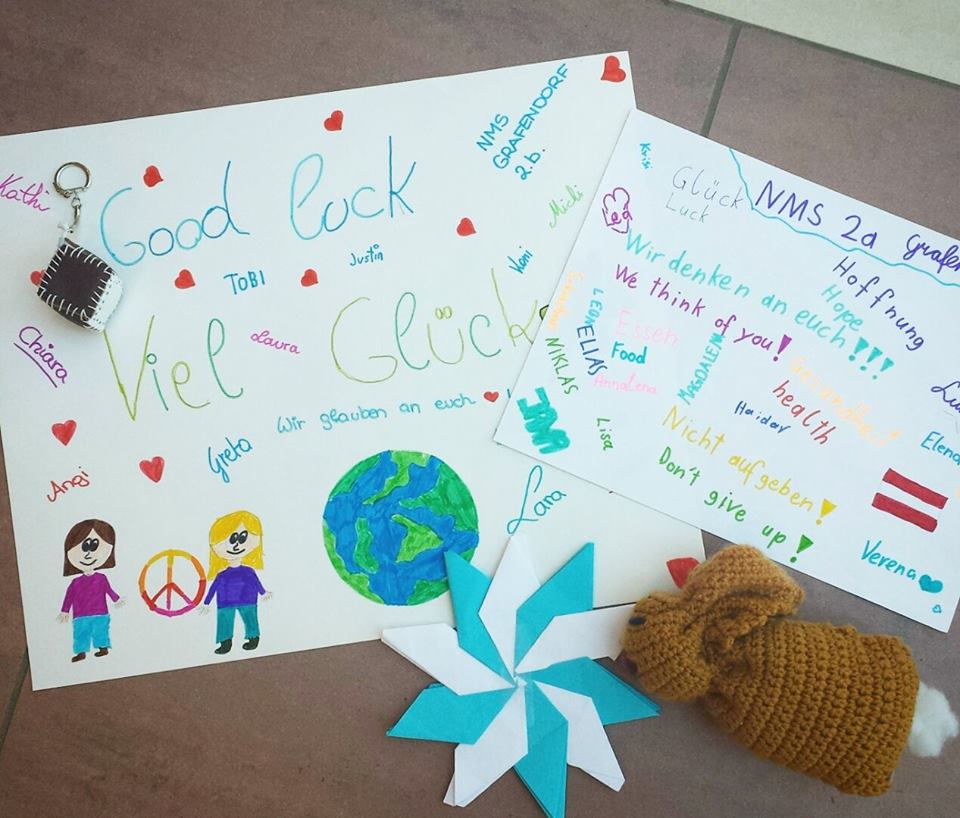 NMS
GRAFENDORF
2.b.
Kathi
Good luck
Michi
TOBI
Justin
Chiara
Viel Glück
Laura
Wir glauben an euch
Greta
Lara
NMS 2a
Glück
Luck
Lea
Hoffnung
Hope
Wir denken an euch!!!
We think of you!
LEON
ELIAS
NIKLAS
Essen
Food
AnnaLena
MAGDALENA
Gesundheit
health
Haidar
JANA
Lisa
Nicht aufgeben!
Don't give up!
Elena
Verena